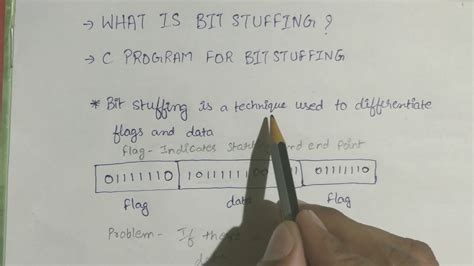 → WHAT IS BIT STUFFING?
→ C PROGRAM FOR BITSTUFFING
* Bit stuffing is a technique used to differentiate
flags and data
flag - Indicates start and end point
01111110 01111110
flag data flag
Problem - If